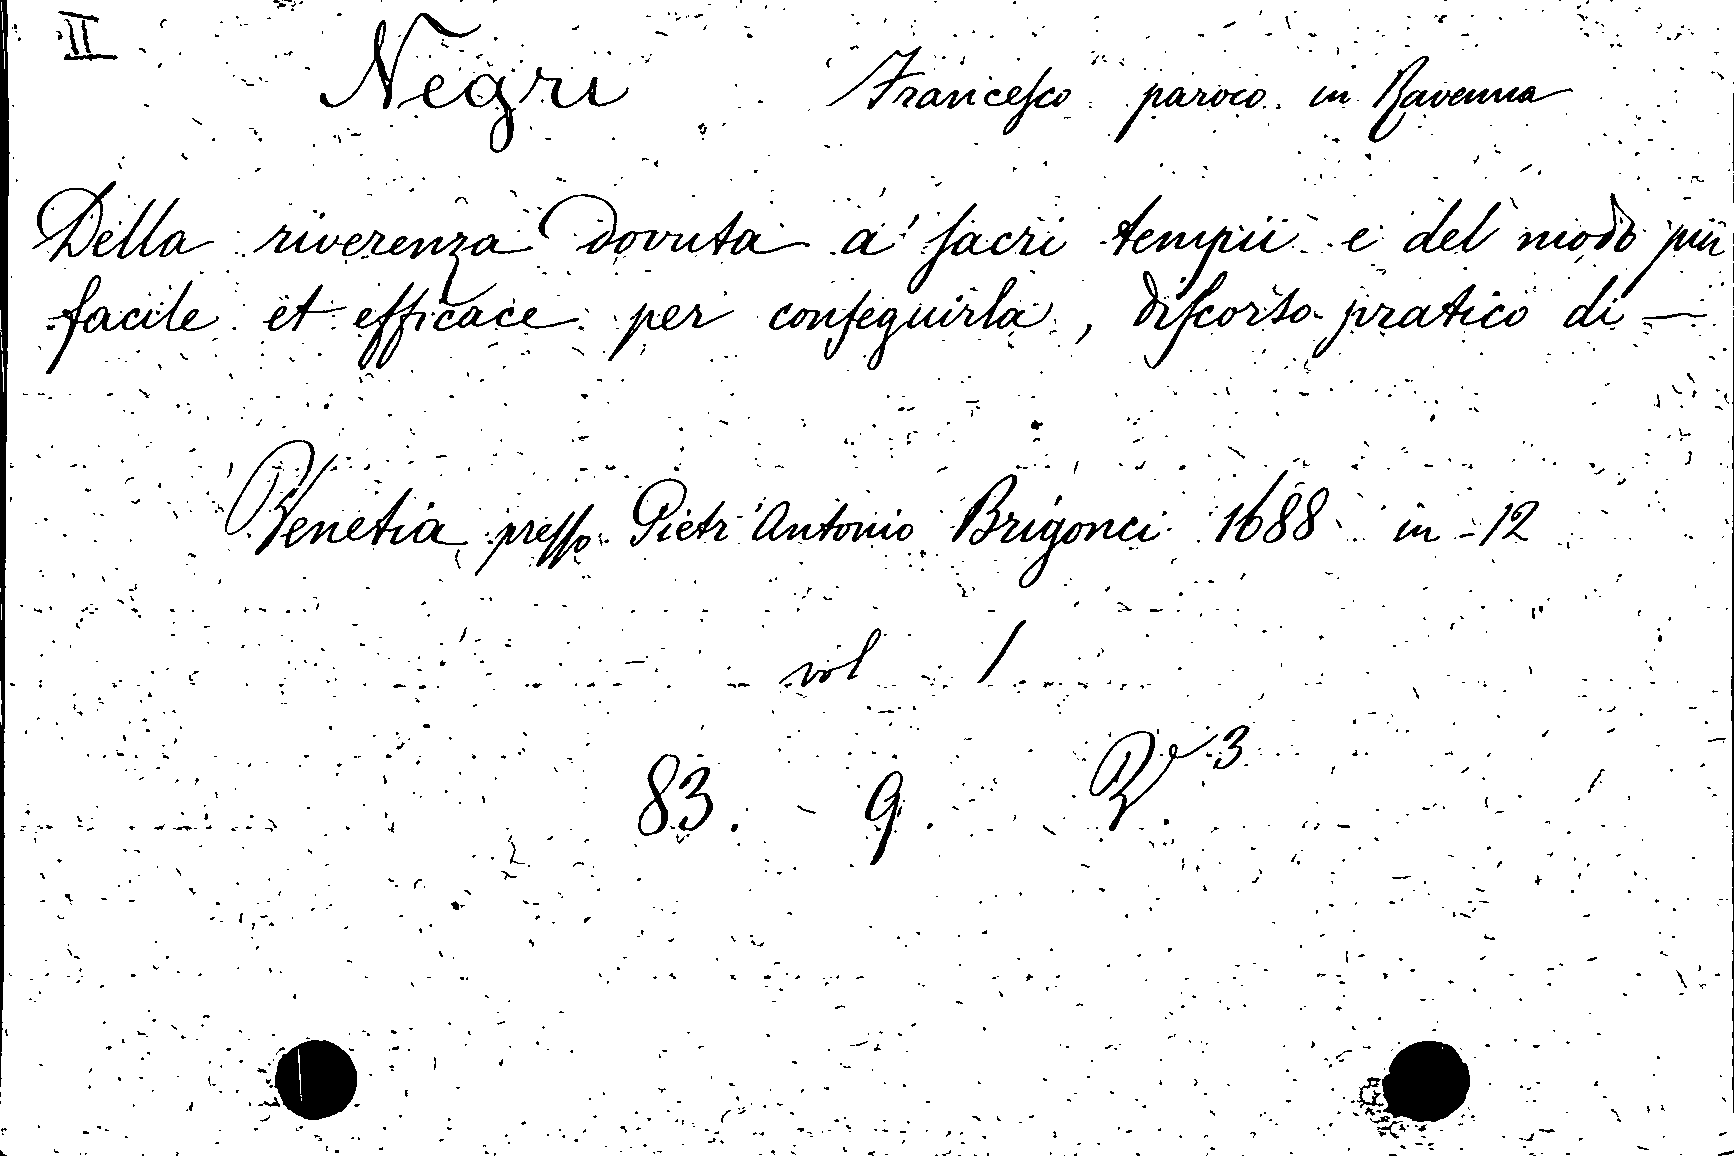 II
Negri Francesco paroco in Ravenna
Della riverenza dovuta a' sacri tempii e del modo più
facile et efficace per conseguirla, discorso pratico di —
Venetia presso Pietr'Antonio Brigonci 1688 in-12
vol 1
83. - 9. 3